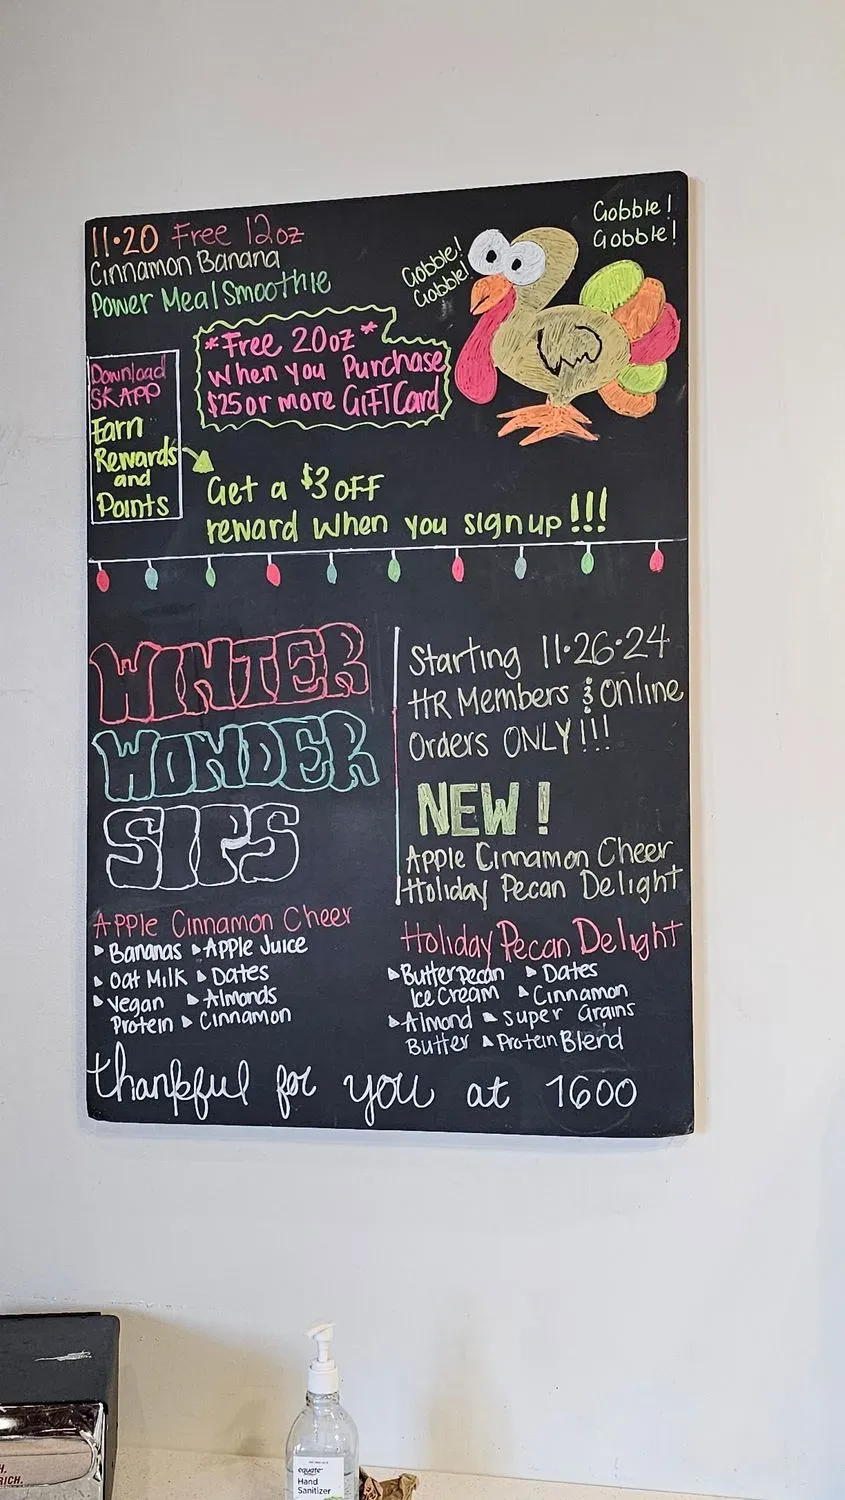 11•20 Free 12oz
Cinnamon Banana
Power Meal Smoothie
Gobble!
Gobble!
Gobble!
Gobble!
*Free 20oz*
when you Purchase
$25 or more GiFT Card
Download
SK APP
Earn
Rewards
and
Points
Get a $3 OFF
reward when you sign up!!!
WINTER
WONDER
SIPS
Starting 11•26•24
HR Members & Online
Orders ONLY!!!
NEW!
Apple Cinnamon Cheer
Holiday Pecan Delight
Apple Cinnamon Cheer
Bananas Apple Juice
Oat Milk Dates
Vegan Almonds
Protein Cinnamon
Holiday Pecan Delight
Butter Pecan Dates
Ice Cream Cinnamon
Almond Super Grains
Butter Protein Blend
thankful for you at 1600
RICH.
equate
Hand
Sanitizer